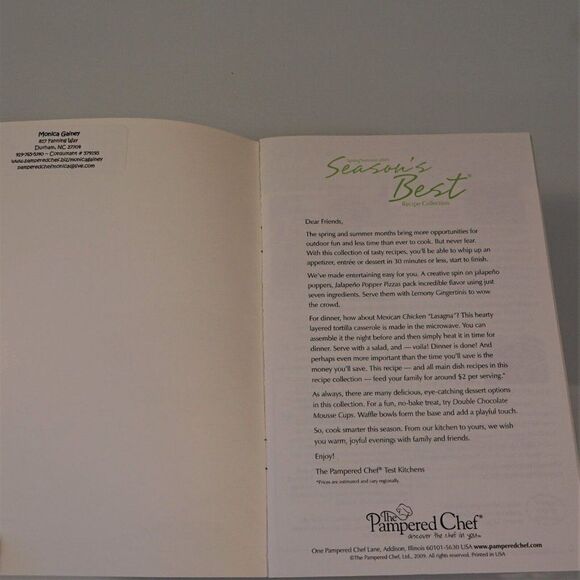 Monica Gainey
Durham, NC
www.pamperedchef.biz/monicagainey
pamperedchefmonica@live.com
Season's
Best®
Recipe Collection
Dear Friends,
The spring and summer months bring more opportunities for
outdoor fun and less time than ever to cook. But never fear.
With this collection of tasty recipes, you'll be able to whip up an
appetizer, entrée or dessert in 30 minutes or less, start to finish.
We've made entertaining easy for you. A creative spin on jalapeño
poppers, Jalapeño Popper Pizzas pack incredible flavor using just
seven ingredients. Serve them with Lemony Gingertinis to wow
the crowd.
For dinner, how about Mexican Chicken "Lasagna"? This hearty
layered tortilla casserole is made in the microwave. You can
assemble it the night before and then simply heat it in time for
dinner. Serve with a salad, and — voila! Dinner is done! And
perhaps even more important than the time you'll save is the
money you'll save. This recipe — and all main dish recipes in this
recipe collection — feed your family for around $2 per serving.*
As always, there are many delicious, eye-catching dessert options
in this collection. For a fun, no-bake treat, try Double Chocolate
Mousse Cups. Waffle bowls form the base and add a playful touch.
So, cook smarter this season. From our kitchen to yours, we wish
you warm, joyful evenings with family and friends.
Enjoy!
The Pampered Chef® Test Kitchens
*Prices are estimated and vary regionally.
The
Pampered Chef®
discover the chef in you™
One Pampered Chef Lane, Addison, Illinois 60101-5630 USA www.pamperedchef.com
©The Pampered Chef, Ltd., 2009. All rights reserved. Printed in USA